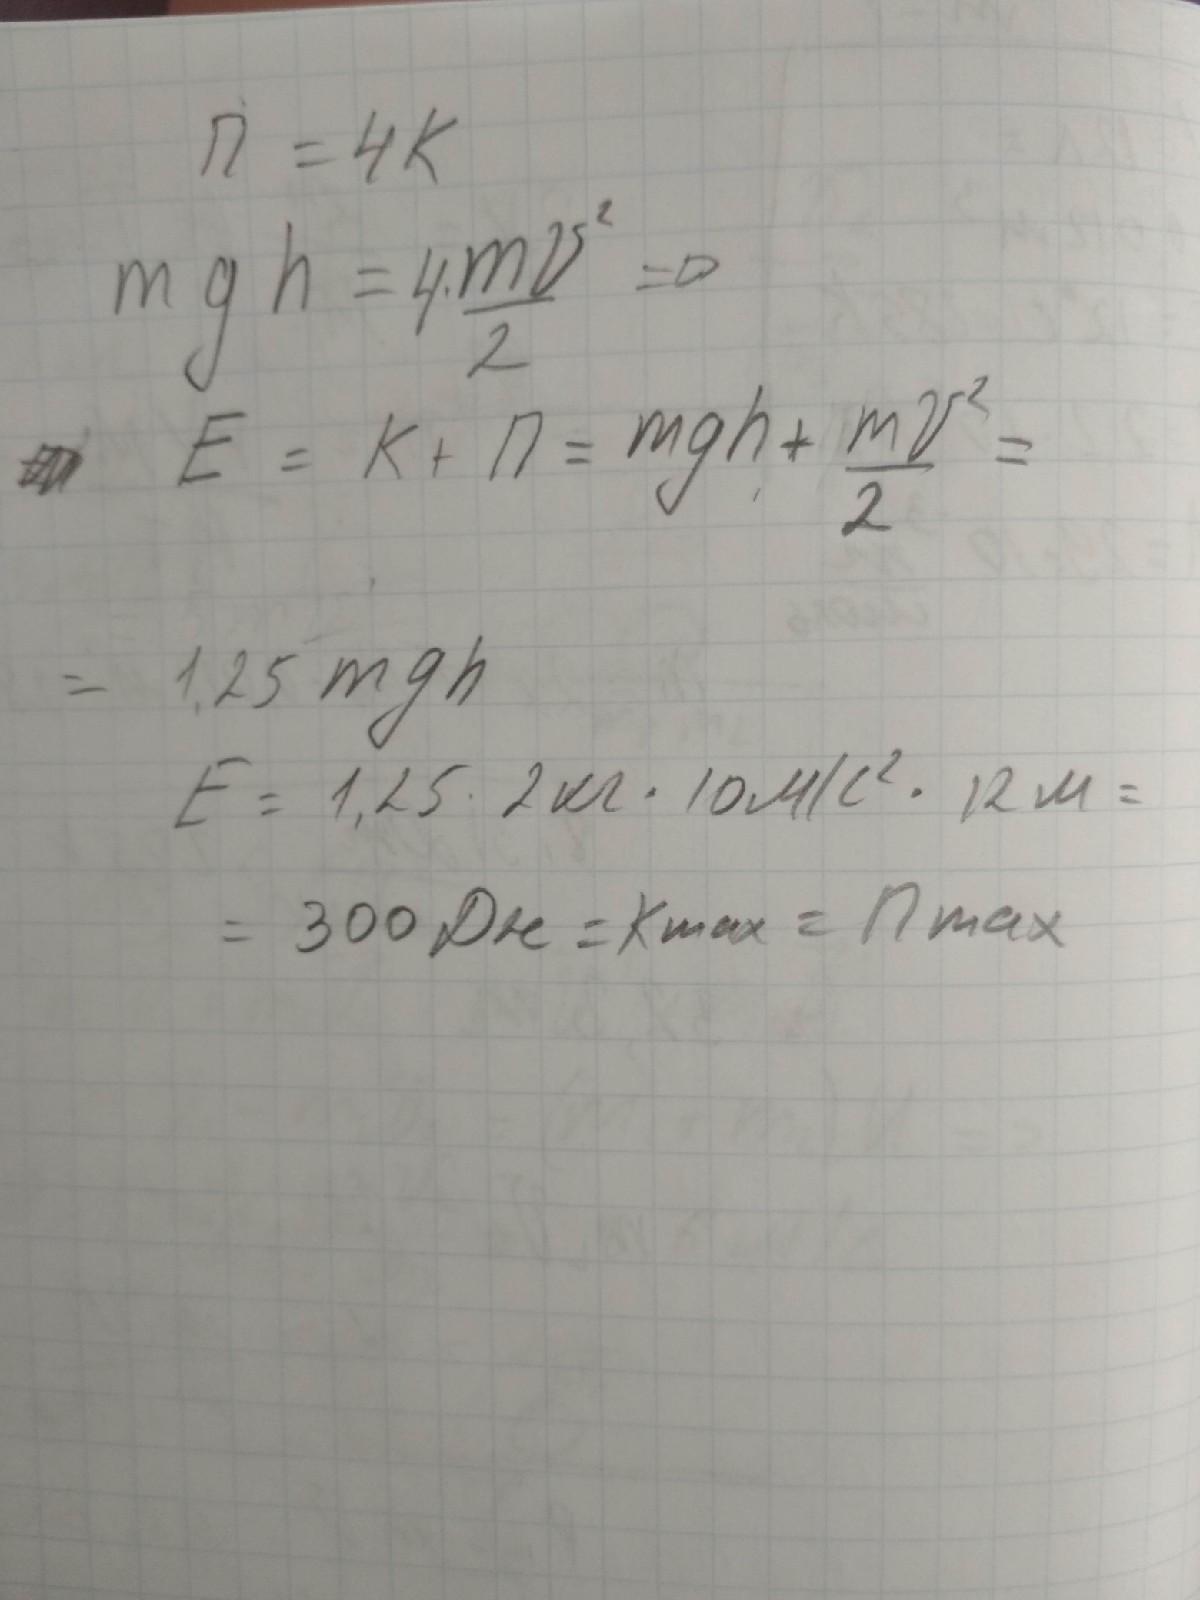 П = 4К
mgh = 4·mv²/2 =>
E = К + П = mgh + mv²/2 =
= 1,25 mgh
E = 1,25 · 2кг · 10м/с² · 12м =
= 300Дж = Кmax = Пmax